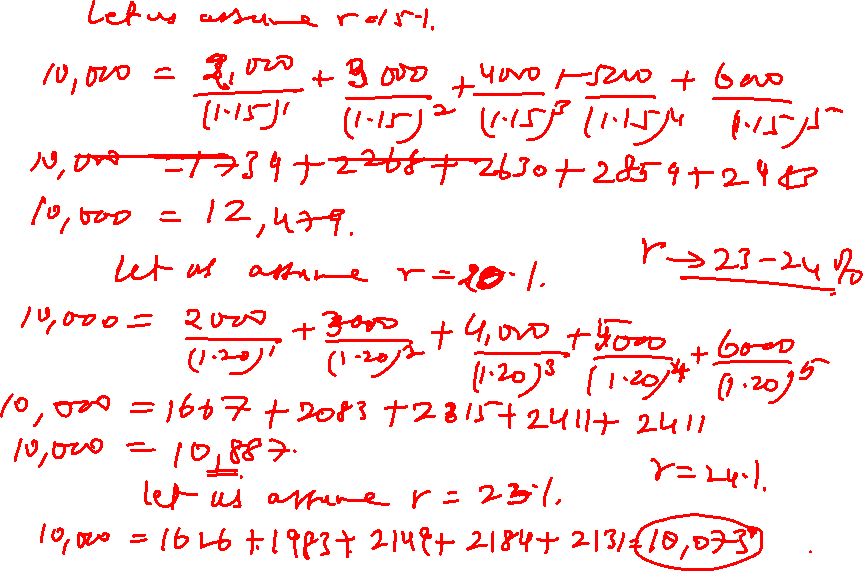 Let us assume r = 15%.
10,000 = 2,000/(1.15)^1 + 3000/(1.15)^2 + 4000/(1.15)^3 + 5000/(1.15)^4 + 6000/(1.15)^5
10,000 = 1739 + 2268 + 2630 + 2859 + 2983
10,000 = 12,479.
r → 23-24%
Let us assume r = 20%.
10,000 = 2000/(1.20)^1 + 3000/(1.20)^2 + 4,000/(1.20)^3 + 5000/(1.20)^4 + 6000/(1.20)^5
10,000 = 1667 + 2083 + 2315 + 2411 + 2411
10,000 = 10,887.
r = 24%.
let us assume r = 23%.
10,000 = 1626 + 1983 + 2149 + 2184 + 2131 = 10,073